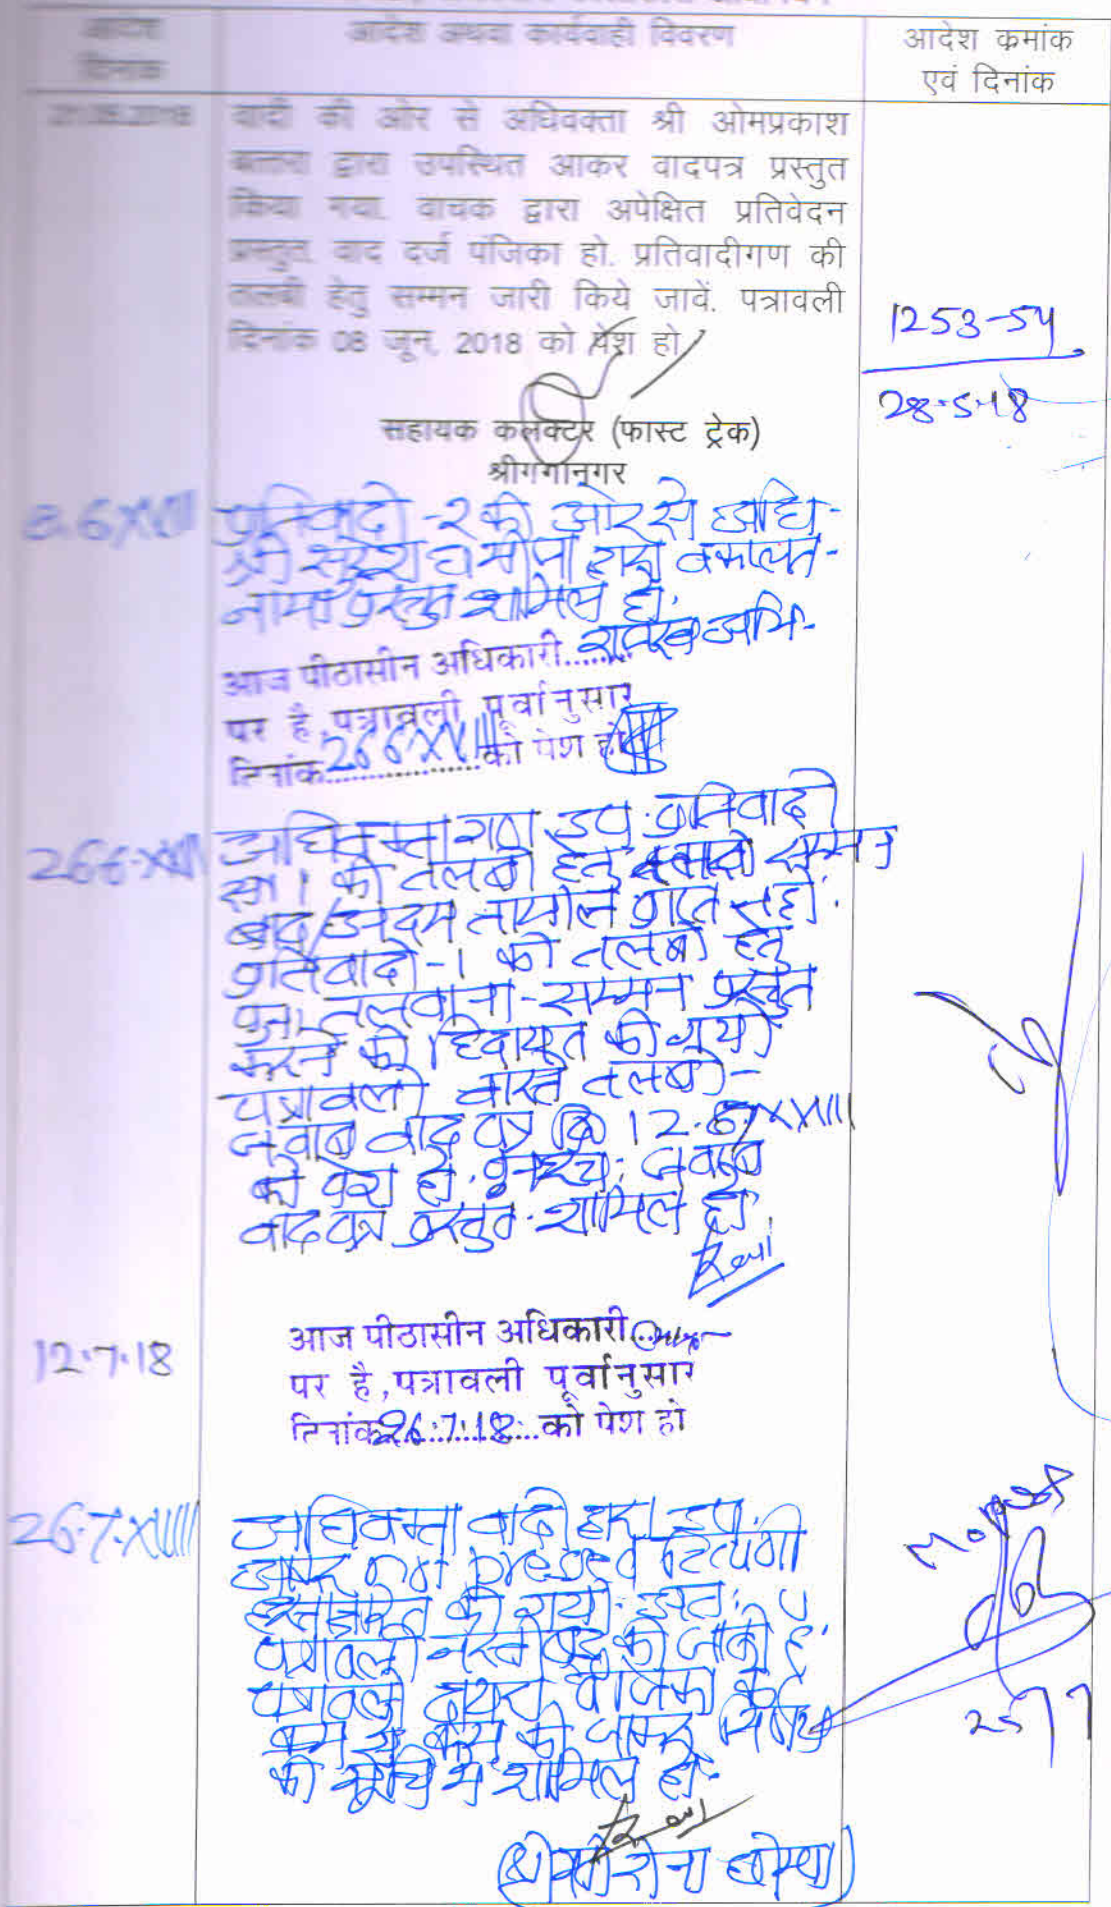 आदेश
दिनांक
आदेश अथवा कार्यवाही विवरण
आदेश कमांक
एवं दिनांक
21.05.2018
वादी की ओर से अधिवक्ता श्री ओमप्रकाश
बत्तरा द्वारा उपस्थित आकर वादपत्र प्रस्तुत
किया गया. वाचक द्वारा अपेक्षित प्रतिवेदन
प्रस्तुत. वाद दर्ज पंजिका हो. प्रतिवादीगण की
तलबी हेतु सम्मन जारी किये जावें. पत्रावली
दिनांक 08 जून, 2018 को पेश हो
1253-54
28.5.18
सहायक कलक्टर (फास्ट ट्रेक)
श्रीगंगानगर
8.6.XVIII
प्रतिवादी -2 की ओर से अधि-
श्री सुरेश द्वारा वकालत-
नामा प्रस्तुत शामिल हो.
आज पीठासीन अधिकारी
पर है, पत्रावली पूर्वानुसार
दिनांक 26.6.XVIII को पेश हो
26.6.XVIII
अधिवक्तागण उप. प्रतिवादी
सं 1 की तलबी हेतु सम्मन
बाद/अदम तामील प्राप्त नहीं.
प्रतिवादी-1 की तलबी हेतु
पुनः तलवाना-सम्मन प्रस्तुत
करने की हिदायत की गयी
पत्रावली वास्ते तलबी-
जवाब वाद पत्र दि 12.7.XVIII
को पेश हो. पुनश्च: जवाब
वाद पत्र प्रस्तुत. शामिल हो
12.7.18
आज पीठासीन अधिकारी
पर है, पत्रावली पूर्वानुसार
दिनांक 26.7.18 को पेश हो
26.7.XVIII
अधिवक्ता वादी द्वारा उप.
आकर not pressed टिप्पणी
हस्ताक्षरित की गयी. अतः
पत्रावली नस्तीबद्ध की जाती है.
पत्रावली दायरा पंजिका के
कम से कम की जाकर
की सूची में शामिल हो.
25/7